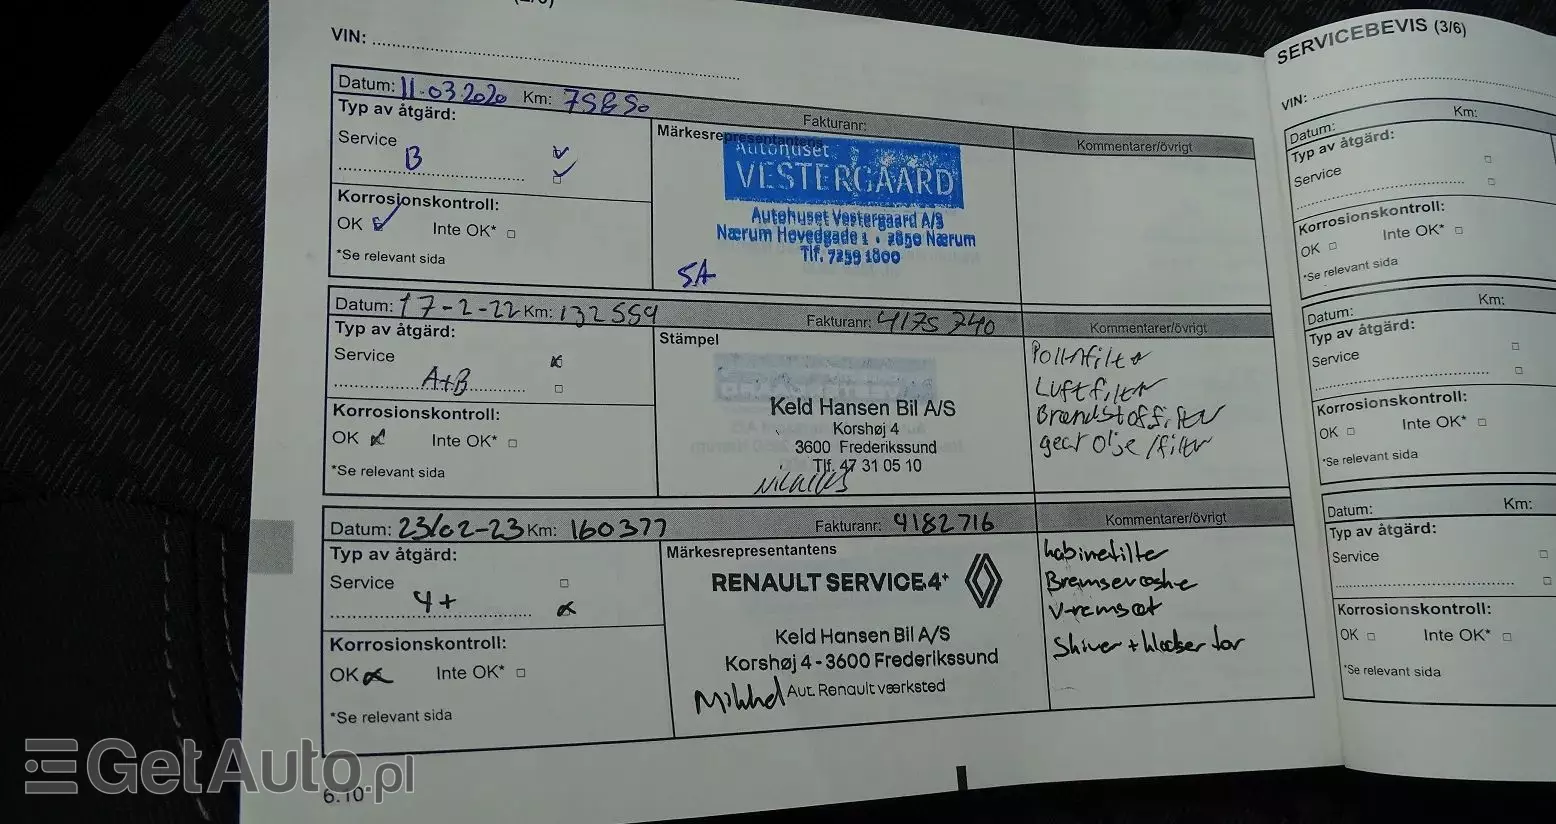 VIN:
Datum: 11.03.2020 Km: 75850 Fakturanr:
Typ av åtgärd:
Service
B
Korrosionskontroll:
OK Inte OK*
*Se relevant sida
Märkesrepresentantens
Autohuset
VESTERGAARD
Autohuset Vestergaard A/S
Nærum Hovedgade 1 · 2850 Nærum
Tlf. 7259 1800
SA
Kommentarer/övrigt
Datum: 17-2-22 Km: 132559 Fakturanr: 4175740
Typ av åtgärd:
Service
A+B
Korrosionskontroll:
OK Inte OK*
*Se relevant sida
Stämpel
Keld Hansen Bil A/S
Korshøj 4
3600 Frederikssund
Tlf. 47 31 05 10
Kommentarer/övrigt
Pollnfilter
Luftfilter
Brændstoffilter
gear olje/filter
Datum: 23/02-23 Km: 160377 Fakturanr: 4182716
Typ av åtgärd:
Service
4+
Korrosionskontroll:
OK Inte OK*
*Se relevant sida
Märkesrepresentantens
RENAULT SERVICE4+
Keld Hansen Bil A/S
Korshøj 4 - 3600 Frederikssund
Mikkel Aut. Renault værksted
Kommentarer/övrigt
kabinefilter
Bremsevæske
V-remsæt
Skiver + klodser for
6.10
SERVICEBEVIS (3/6)
VIN:
Datum: Km:
Typ av åtgärd:
Service
Korrosionskontroll:
OK Inte OK*
*Se relevant sida
Datum: Km:
Typ av åtgärd:
Service
Korrosionskontroll:
OK Inte OK*
*Se relevant sida
Datum: Km:
Typ av åtgärd:
Service
Korrosionskontroll:
OK Inte OK*
*Se relevant sida
GetAuto.pl